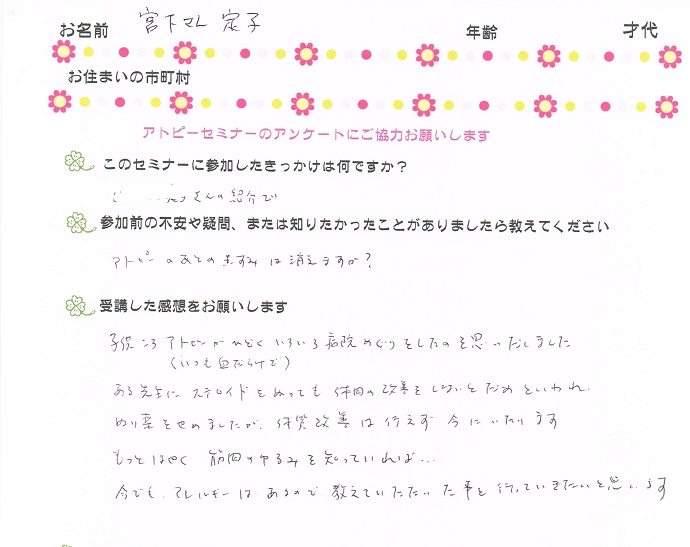 お名前 宮下マム 定子 年齢 才代
お住まいの市町村
アトピーセミナーのアンケートにご協力お願いします
このセミナーに参加したきっかけは何ですか?
さんの紹介で
参加前の不安や疑問、または知りたかったことがありましたら教えてください
アトピーのあとの黒ずみは消えますか?
受講した感想をお願いします
子供ころアトピーがひどくいろいろ病院めぐりをしたのを思いだしました
(いつも血だらけで)
ある先生にステロイドをぬっても体内の改善をしないとだめといわれ、
ぬり薬をやめましたが、体質改善は行えず今にいたります
もっとはやく 筋肉のゆるみを知っていれば...
今でも、アレルギーはあるので 教えていただいた事を行っていきたいと思います